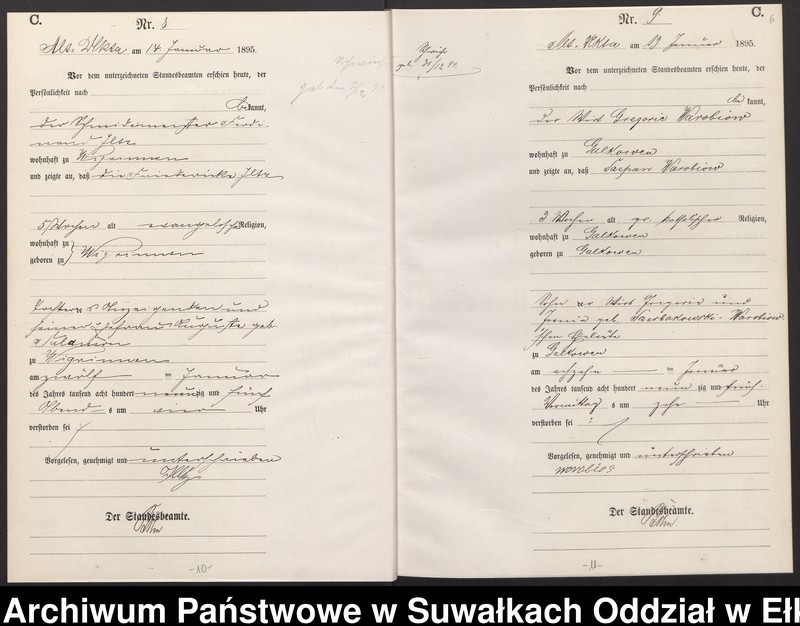 C.
Nr. 8
Alt-Ukta am 14 Januar 1895.
Vor dem unterzeichneten Standesbeamten erschien heute, der
Persönlichkeit nach
bekannt,
der Schneidermeister Ferdi-
nand
wohnhaft zu Wigrinnen
und zeigte an, daß die Friedericke
5 Wochen alt evangelischer Religion,
wohnhaft zu
geboren zu Wigrinnen
Tochter des Anzeigenden und
seiner Ehefrau Auguste geb.
zu Wigrinnen
am zwölf ten Januar
des Jahres tausend acht hundert neunzig und fünf
Abends um vier Uhr
verstorben sei
Vorgelesen, genehmigt und unterschrieben
Der Standesbeamte.
-10-
C.
6
Nr. 9
Alt-Ukta am 19 Januar 1895.
Vor dem unterzeichneten Standesbeamten erschien heute, der
Persönlichkeit nach
be kannt,
der Wirt Gregorie Warobiow
wohnhaft zu Galkowen
und zeigte an, daß Warobiow
3 Wochen alt gr. katholischer Religion,
wohnhaft zu Galkowen
geboren zu Galkowen
Sohn der Wirt Gregorie und
geb. Warobiow-
schen Eheleute
zu Galkowen
am ten Januar
des Jahres tausend acht hundert neun zig und fünf
Vormittag s um zehn Uhr
verstorben sei :
Vorgelesen, genehmigt und unterschrieben
Der Standesbeamte.
-11-
Archiwum Państwowe w Suwałkach Oddział w Ełk